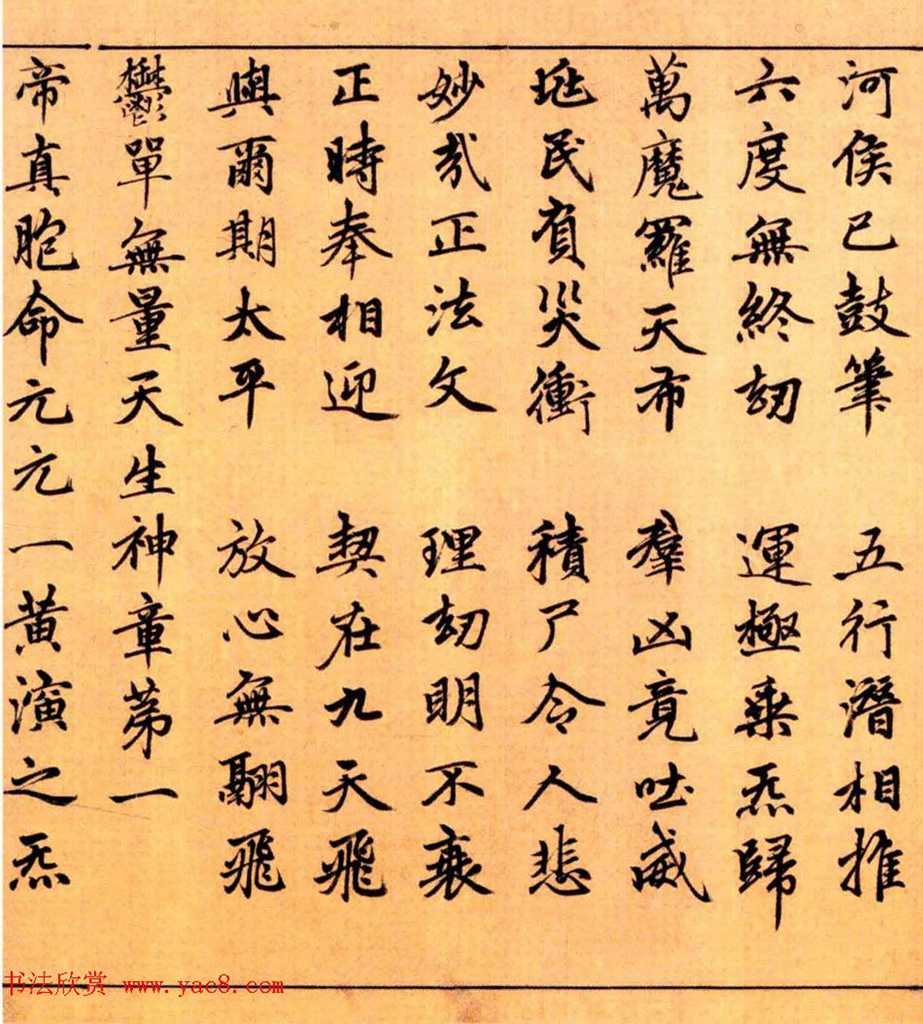 河侯已鼓筆 五行潛相推
六度無終劫 運極乘炁歸
萬魔羅天布 羣凶竟吐威
民有災衝 積尸令人悲
妙哉正法文 理劫明不衰
正時奉相迎 契在九天飛
與爾期太平 放心無翮飛
欝單無量天生神章苐一
帝真胞命元元一黄演之炁
书法欣赏 www.yac8.com